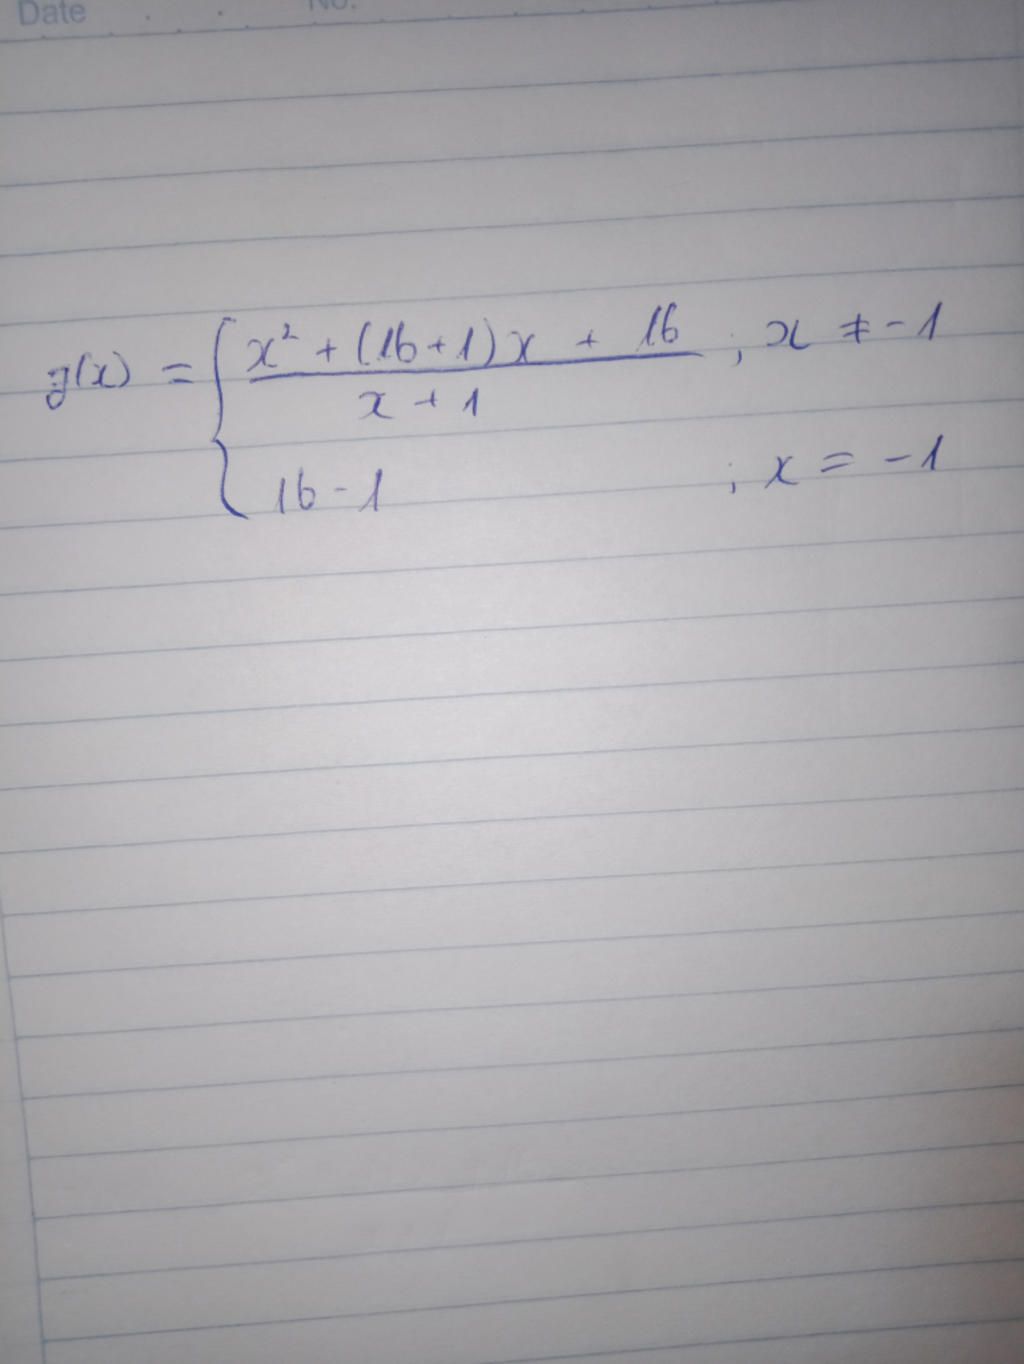 Date No.
g(x) = { x² + (16+1)x + 16 ; x ≠ -1
x + 1
16 - 1 ; x = -1